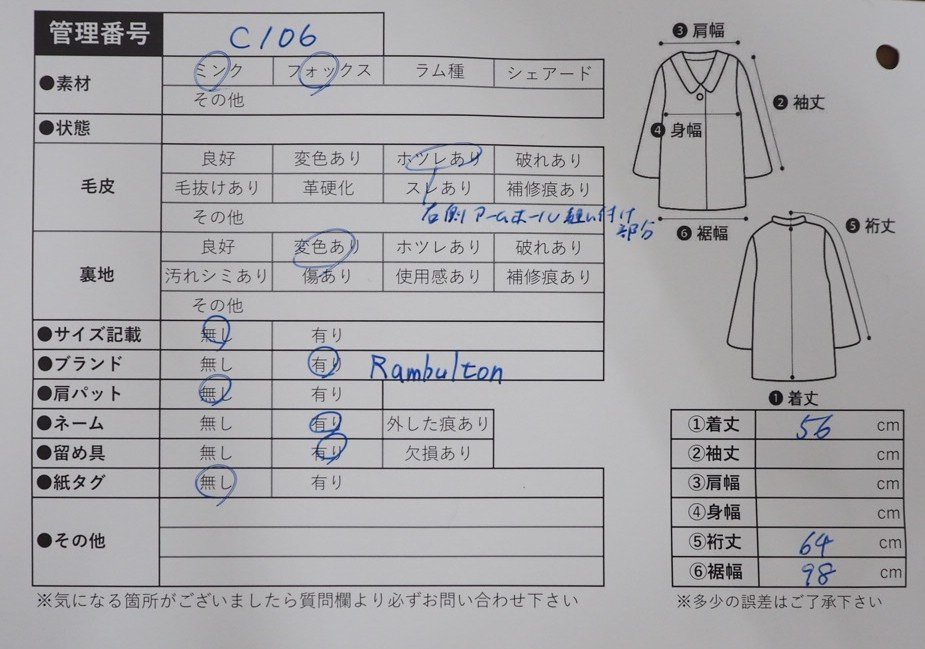 管理番号 C106
●素材 ミンク フォックス ラム種 シェアード
その他
●状態
毛皮 良好 変色あり ホツレあり 破れあり
毛抜けあり 革硬化 スレあり 補修痕あり
その他 右側アームホール縫い付け
部分
裏地 良好 変色あり ホツレあり 破れあり
汚れシミあり 傷あり 使用感あり 補修痕あり
その他
●サイズ記載 無し 有り
●ブランド 無し 有り Rambulton
●肩パット 無し 有り
●ネーム 無し 有り 外した痕あり
●留め具 無し 有り 欠損あり
●紙タグ 無し 有り
●その他
※気になる箇所がございましたら質問欄より必ずお問い合わせ下さい
❸肩幅
❷袖丈
❹身幅
❻裾幅
❺裄丈
❶着丈
①着丈 56 cm
②袖丈 cm
③肩幅 cm
④身幅 cm
⑤裄丈 64 cm
⑥裾幅 98 cm
※多少の誤差はご了承下さい